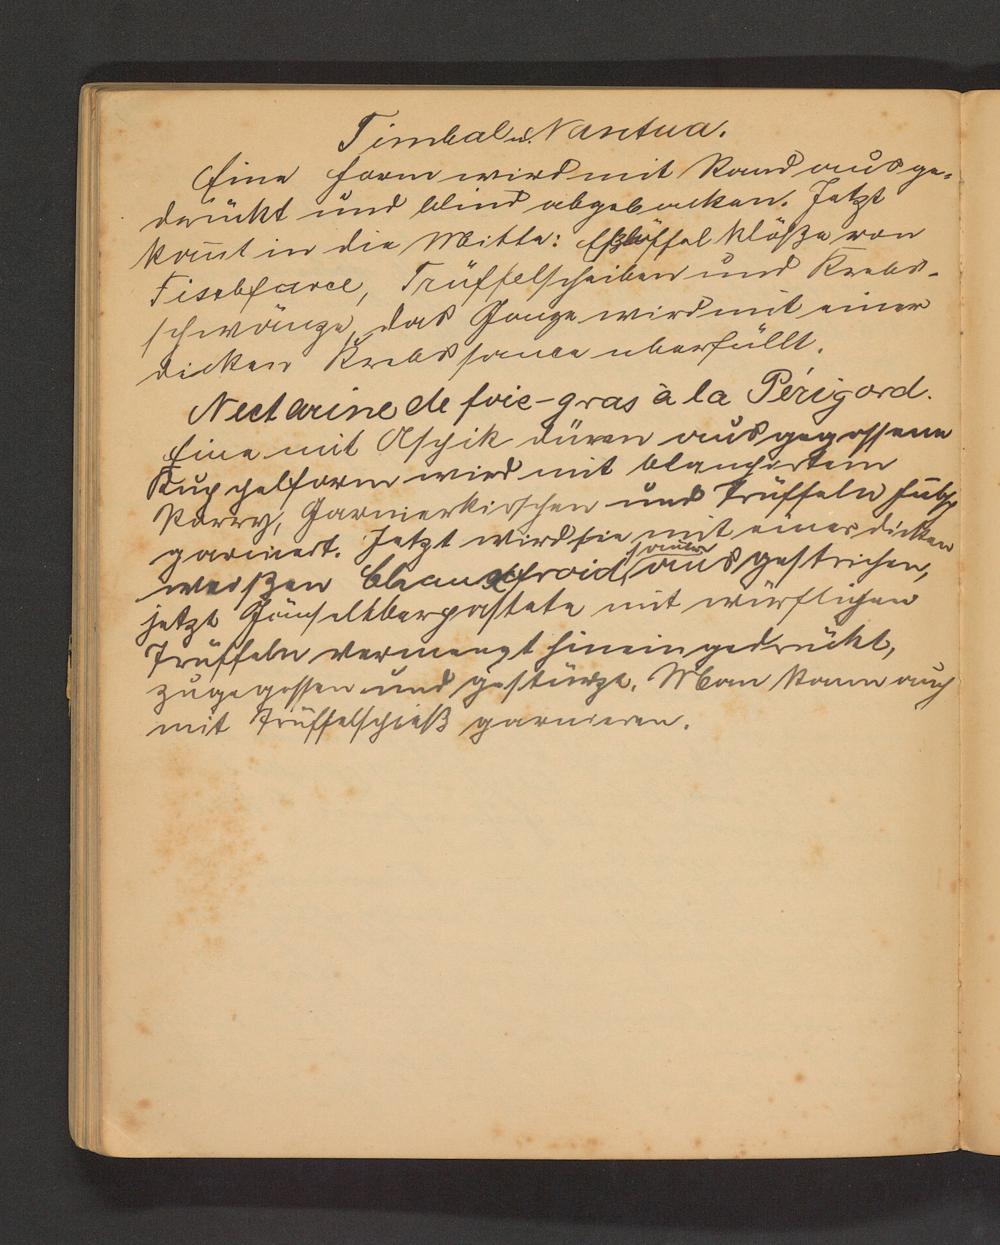 Timbal u. Nantua.
Eine Form wird mit Rand ausge-
drückt und blind abgebacken. Jetzt
kom̄t in die Mitte: Eßlöffelklöße von
Fischfarce, Trüffelscheiben und Krebs-
schwänze, das Ganze wird mit einer
dicken Krebssauce uberfüllt.
Nectarine de foie-gras à la Périgord.
Eine mit Aspik dünn ausgegossene
Kuppelform wird mit blanchirtem
Porry, und Trüffeln hübsch
garniert. Jetzt wird sie mit einer dicken
sauce
weißen froid, ausgestrichen,
jetzt Gänseleberpastete mit würfligen
Trüffeln vermengt hineingedrückt,
zugegossen und gestürzt. Man kann auch
mit garnieren.